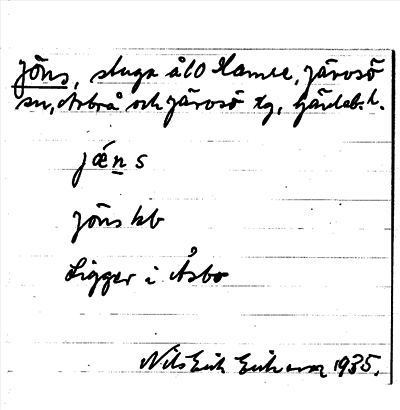 Jöns, stuga å 10 Hamre, Järvsö
sn, Arbrå och Järvsö tg, Gävleb. l.
jǽn̲s
Jöns kb
Ligger i Åsbo
Nils Erik Eriksson 1935.